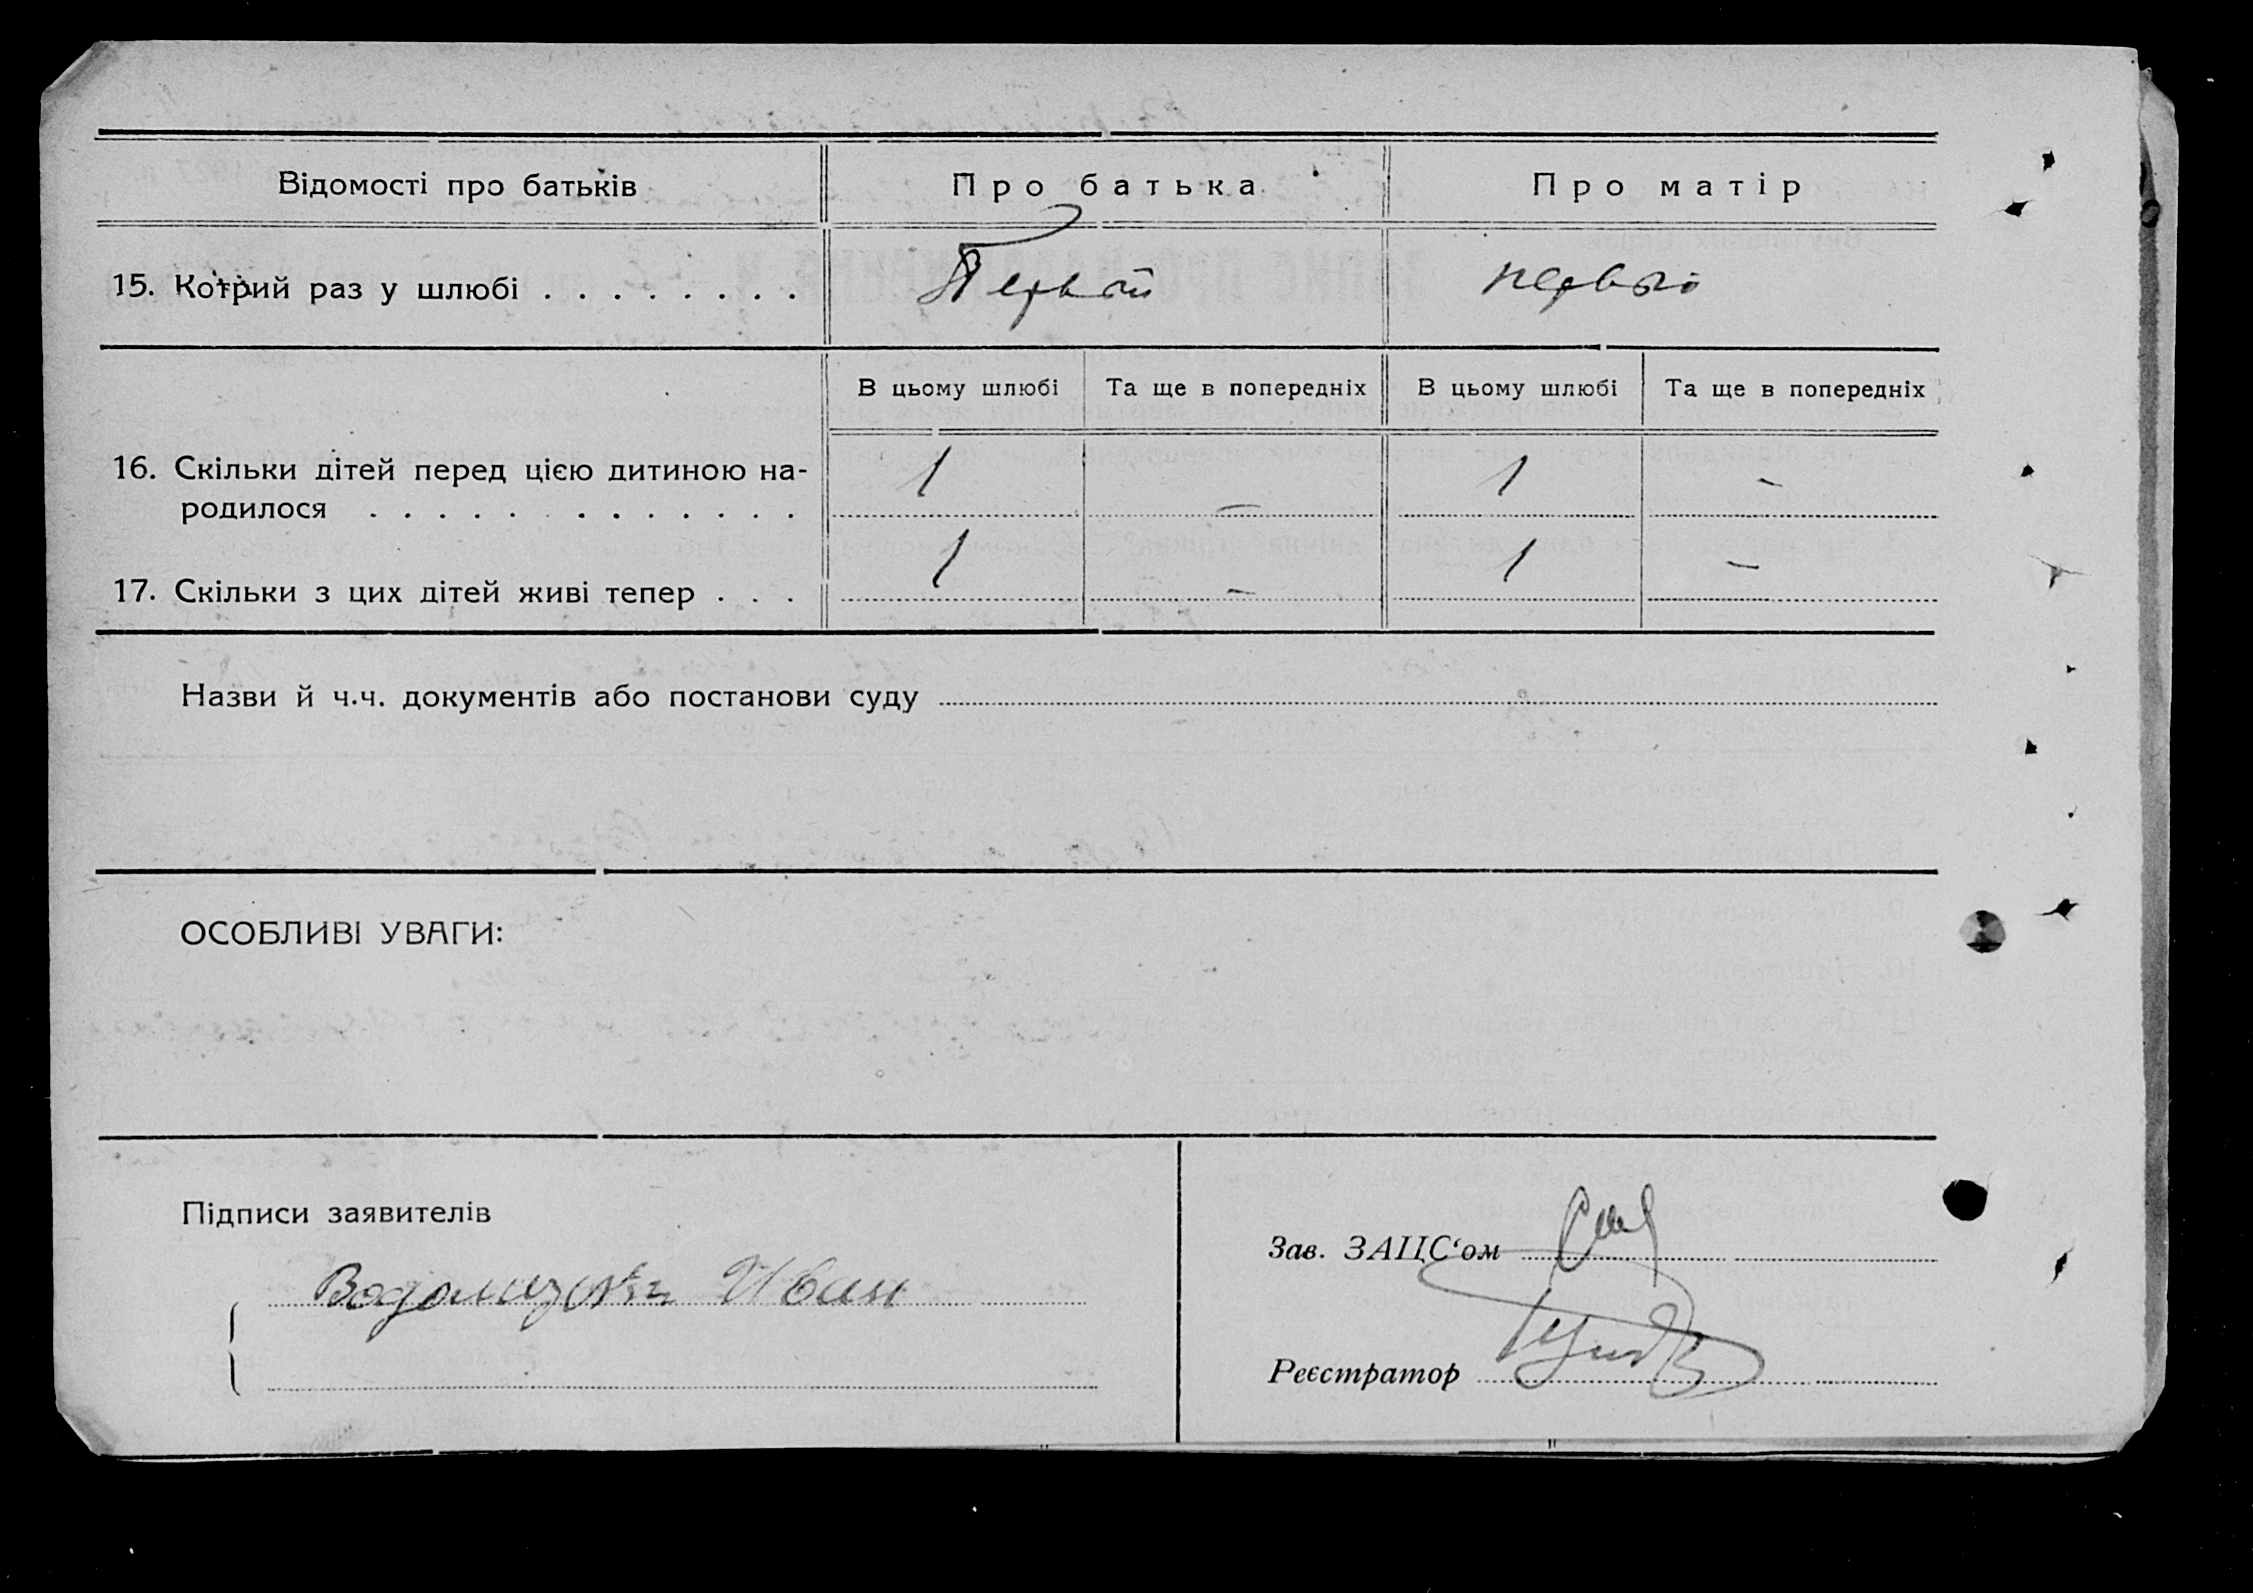 Відомості про батьків
Про батька
Про матір
15. Котрий раз у шлюбі . . . . . . . .
Первый
первый
В цьому шлюбі
Та ще в попередніх
В цьому шлюбі
Та ще в попередніх
16. Скільки дітей перед цією дитиною на-
родилося . . . . . . . . . . . . .
1
—
1
-
17. Скільки з цих дітей живі тепер . . .
1
-
1
-
Назви й ч.ч. документів або постанови суду
ОСОБЛИВІ УВАГИ:
Підписи заявителів
Иван
Зав. ЗАЦС‘ом
Реєстратор